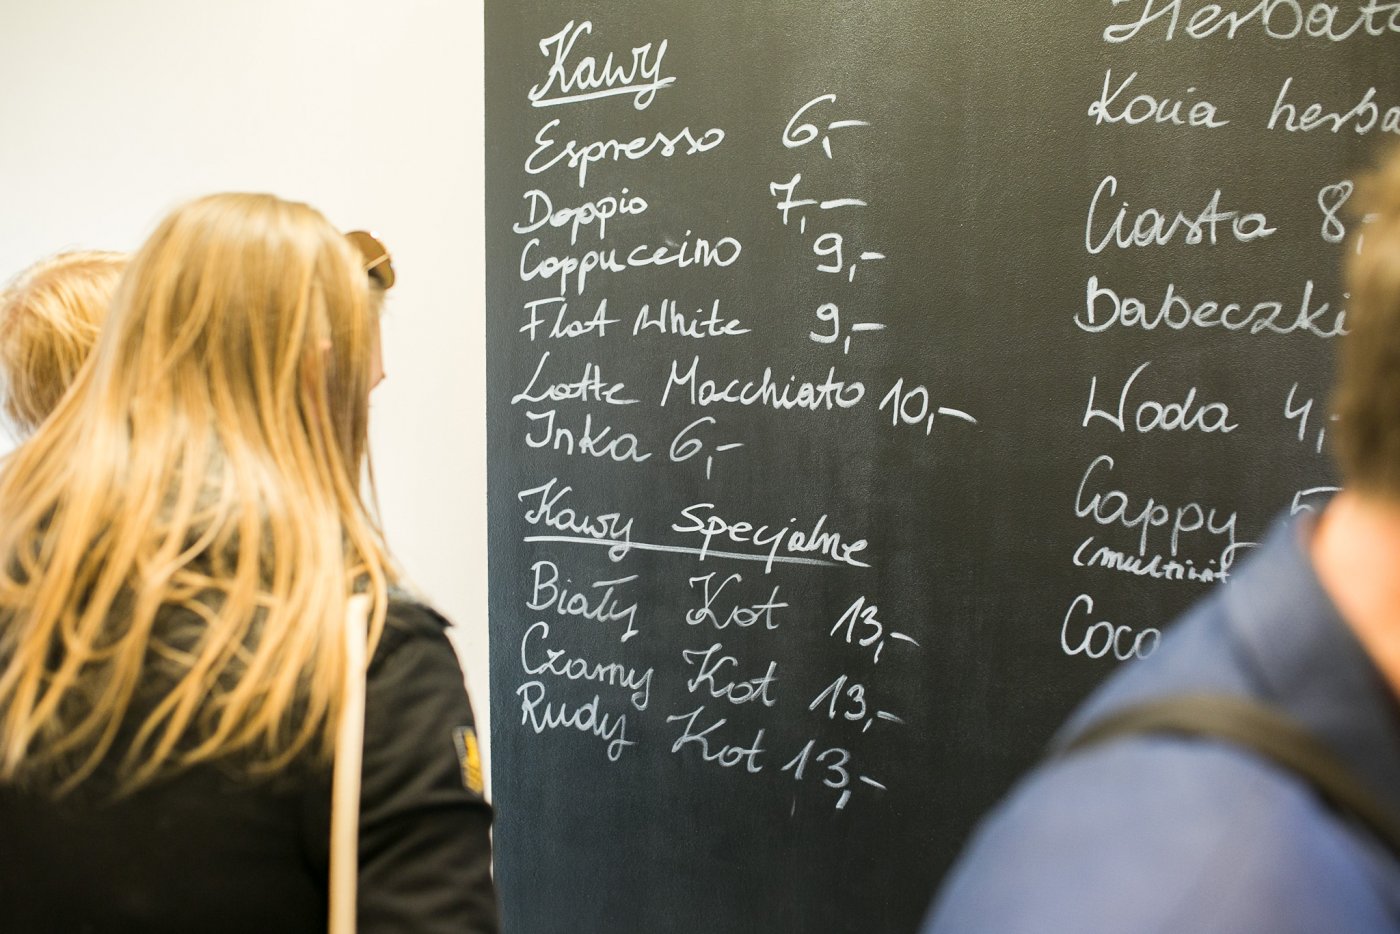 Kawy
Espresso 6,-
Doppio 7,-
Cappuccino 9,-
Flat White 9,-
Latte Macchiato 10,-
Inka 6,-
Kawy Specjalne
Biały Kot 13,-
Czarny Kot 13,-
Rudy Kot 13,-
Herbat
Kocia herba
Ciasta 8,
Babeczki
Woda 4,-
Cappy 5
(multiwit
Coca